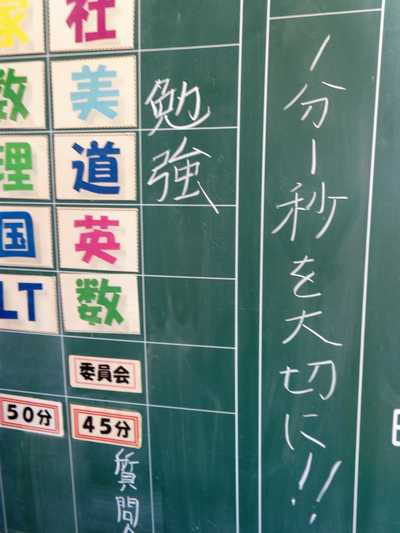 1分1秒を大切に!!
勉強
社
美
道
英
数
委員会
45分
質問
数
理
国
LT
50分